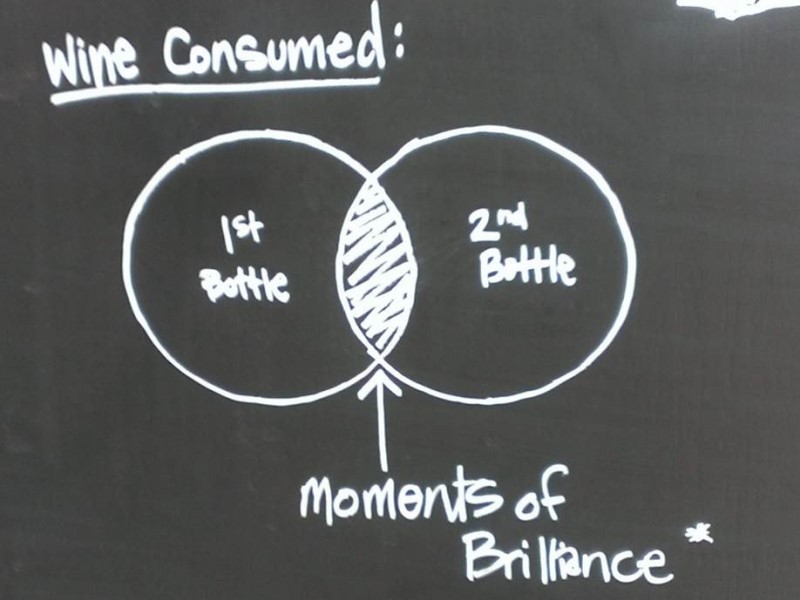 Wine Consumed:
1st
Bottle
2nd
Bottle
Moments of
Brilliance*